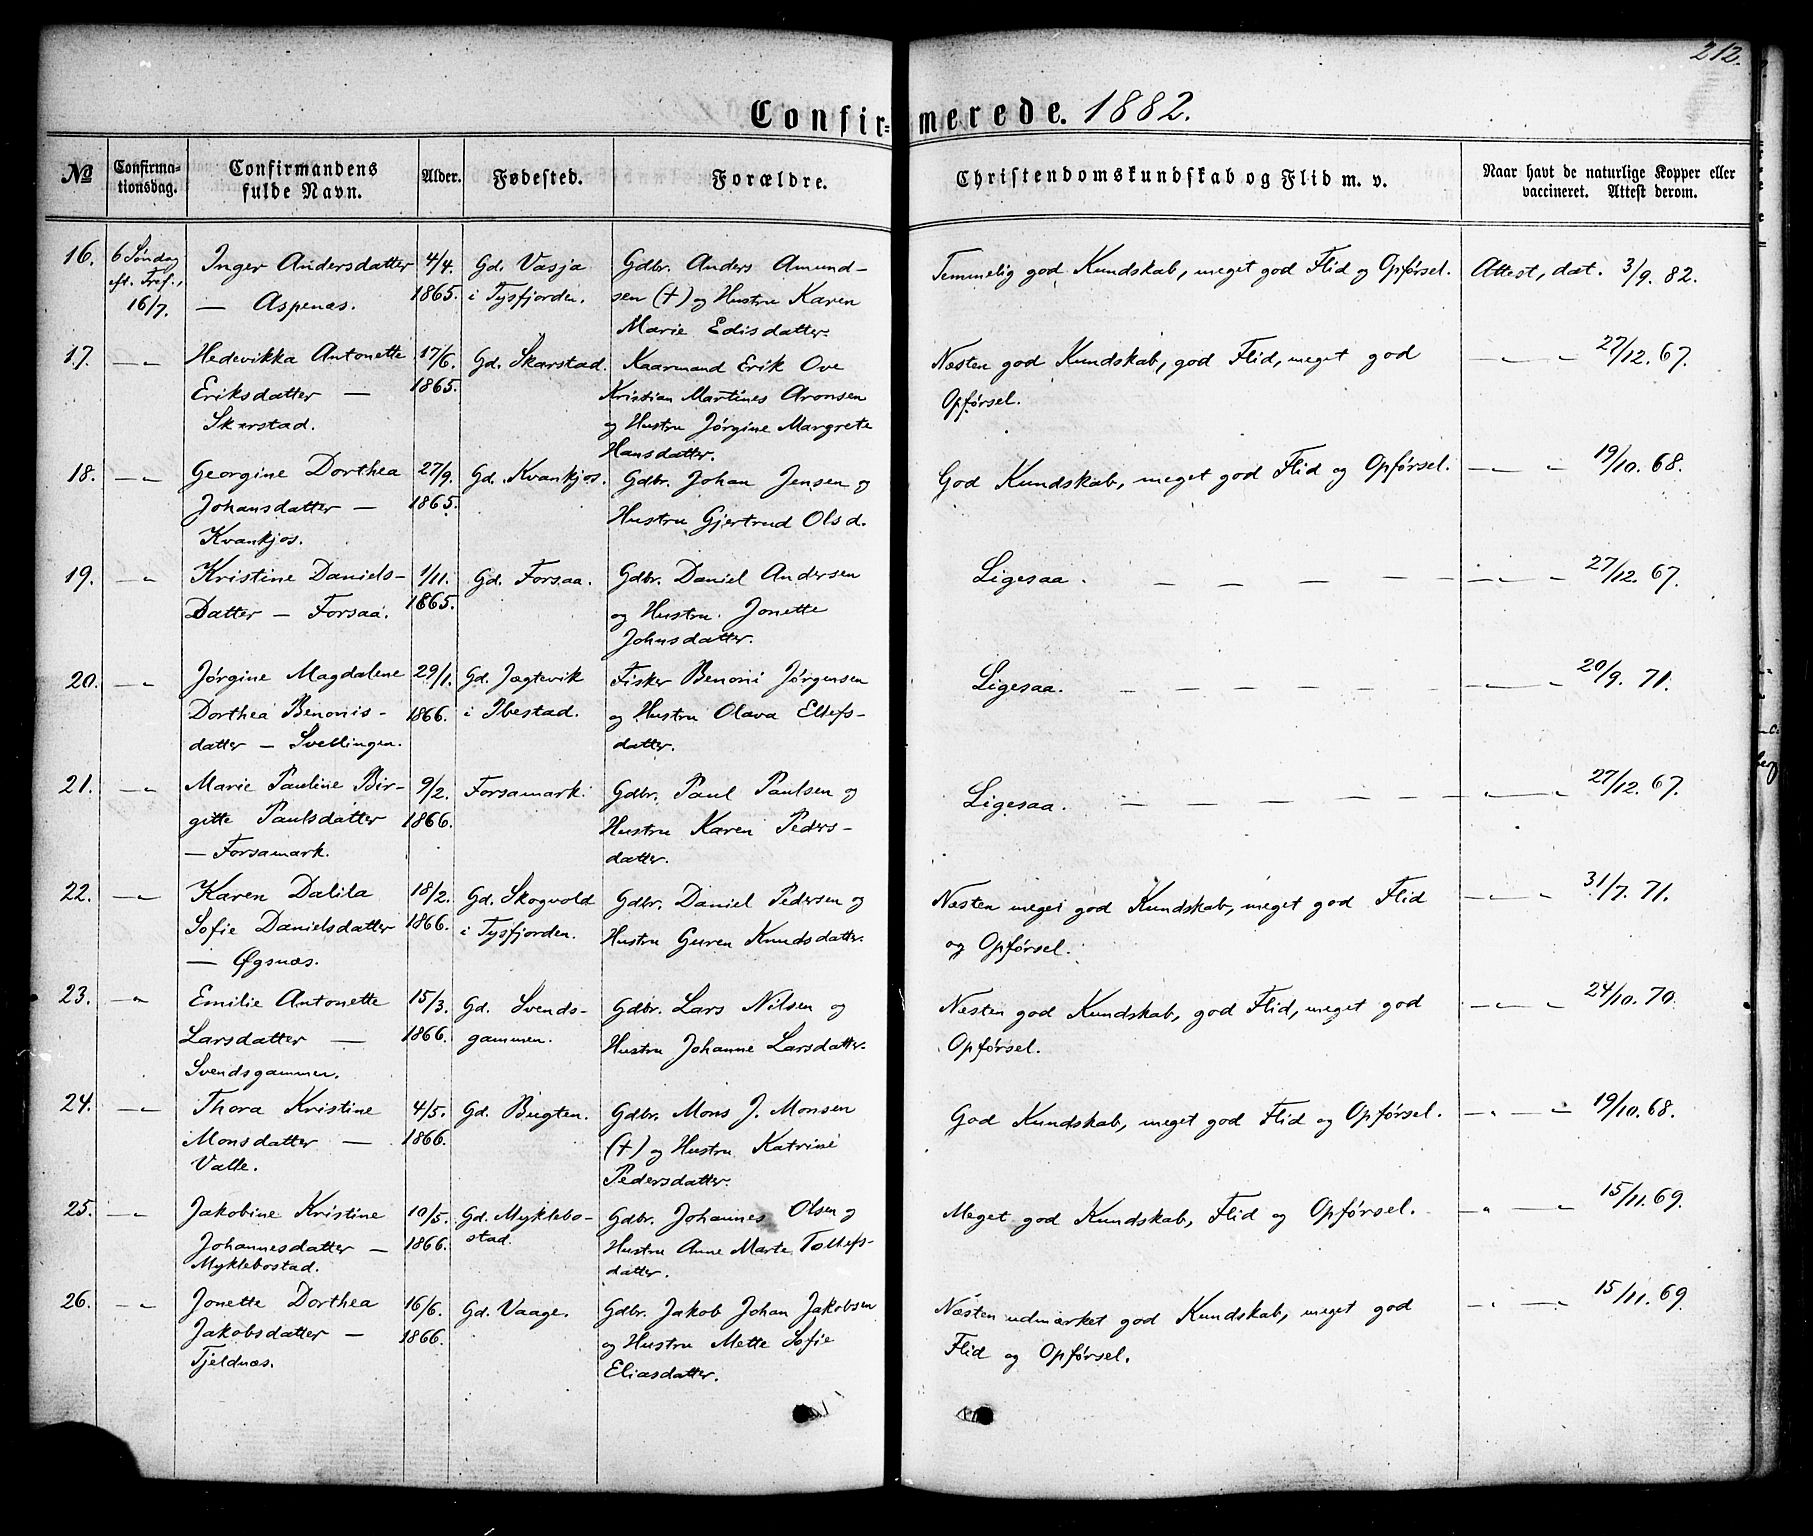 212.
Confirmerede. 1882.
№ Confirmationsdag. Confirmandens fulde Navn. Alder. Fødested. Forældre. Christendomskundskab og Flid m. v. Naar havt de naturlige Kopper eller vaccineret. Attest derom.
16. 6 Søndag Inger Andersdatter 4/4. Gd. Vasja Gdbr. Anders Amund- Temmelig god Kundskab, meget god Flid og Opførsel. Attest, dat. 3/9. 82.
eft. Tref., — Aspenæs. 1865. i Tysfjorden. sen (†) og Hustru Karen
16/7. Marie Edisdatter.
17. — „ Hedevikka Antonette 17/6. Gd. Skarstad. Kaarmand Erik Ove Næsten god Kundskab, god Flid, meget god — „ — „ 27/12. 67.
Eriksdatter — 1865. Kristian Martines Aronsen Opførsel.
Skarstad. og Hustru Jørgine Margrete
Hansdatter.
18. — „ Georgine Dorthea 27/9. Gd. Kvankjos. Gdbr. Johan Jensen og God Kundskab, meget god Flid og Opførsel. — „ — „ 19/10. 68.
Johansdatter — 1865. Hustru Gjertrud Olsd.
Kvankjos.
19. — „ Kristine Daniels- 1/11. Gd. Forsaa. Gdbr. Daniel Andersen Ligesaa. — — — — — — „ — „ 27/12. 67.
Datter — Forsaa. 1865. og Hustru Jonette
Johnsdatter.
20. — „ Jørgine Magdalene 29/1. Gd. Jægtevik Fisker Benoni Jørgensen Ligesaa. — — — — — — — „ — „ 20/9. 71.
Dorthea Benonis- 1866. i Ibestad. og Hustru Olava Ellefs-
datter — Svellingen. datter.
21. — „ Marie Pauline Bir- 9/2. Forsamark. Gdbr. Paul Paulsen og Ligesaa. — — — — — — — „ — „ 27/12. 67.
gitte Paulsdatter 1866. Hustru Karen Peders-
— Forsamark. datter.
22. — „ Karen Dalila 18/2. Gd. Skogvold Gdbr. Daniel Pedersen og Næsten meget god Kundskab, meget god Flid — „ — „ 31/7. 71.
Sofie Danielsdatter 1866. i Tysfjorden. Hustru Guren Knudsdatter. og Opførsel.
— Øgsnæs.
23. — „ Emilie Antonette 15/3. Gd. Svends- Gdbr. Lars Nilsen og Næsten god Kundskab, god Flid, meget god — „ — „ 24/10. 70.
Larsdatter — 1866. gammen. Hustru Johanne Larsdatter. Opførsel.
Svendsgammen.
24. — „ Thora Kristine 4/5. Gd. Bugten. Gdbr. Mons J. Monsen God Kundskab, meget god Flid og Opførsel. — „ — „ 19/10. 68.
Monsdatter — 1866. (†) og Hustru Katrine
Valle. Pedersdatter.
25. — „ Jakobine Kristine 10/5. Gd. Myklebo- Gdbr. Johannes Olsen og Meget god Kundskab, Flid og Opførsel. — „ — „ 15/11. 69.
Johannesdatter — 1866. stad. Hustru Anne Marte Tollefs-
Myklebostad. datter.
26. — „ Jonette Dorthea 16/6. Gd. Vaage. Gdbr. Jakob Johan Jakobsen Næsten udmærket god Kundskab, meget god — „ — „ 15/11. 69.
Jakobsdatter — 1866. og Hustru Mette Sofie Flid og Opførsel.
Tjeldnæs. Eliasdatter.